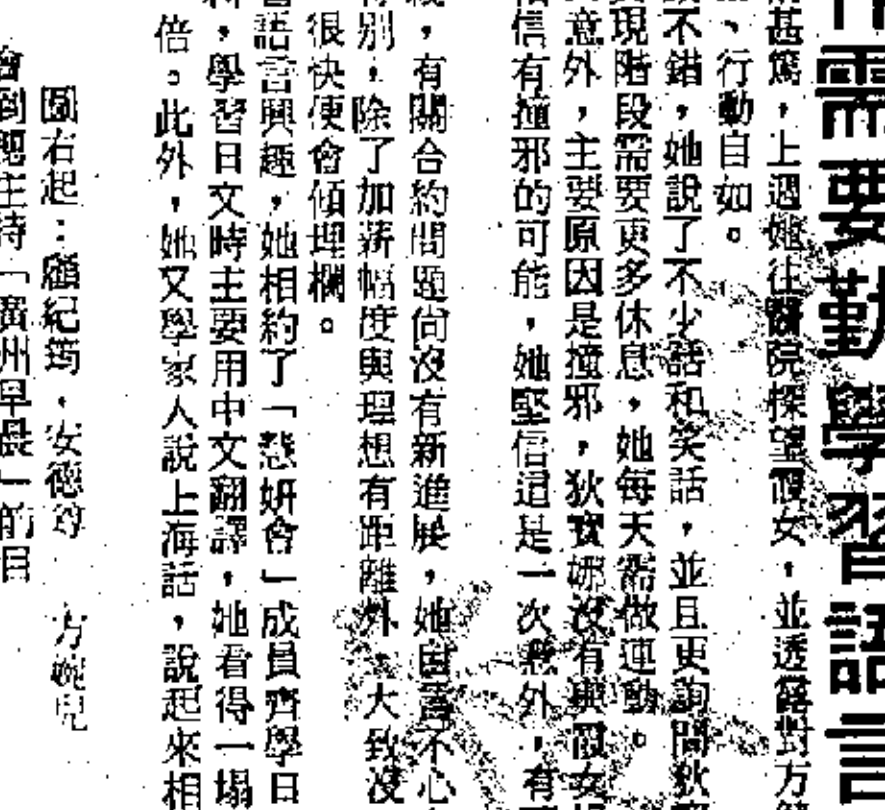 需要勤學習語言
甚篤，上週她往醫院探望霞女，並透露對方
、行動自如。
不錯，她說了不少話和笑話，並且更詢問狄
現階段需要更多休息，她每天需做運動。
意外，主要原因是撞邪，狄寶娜沒有與霞女
信有撞邪的可能，她堅信這是一次意外，有
，有關合約問題尚沒有新進展，她因為不心
別，除了加薪幅度與理想有距離外，大致沒
很快便會傾埋欄。
語言興趣，她相約了「慧妍會」成員齊學日
，學習日文時主要用中文翻譯，她看得一塌
倍。此外，她又學家人說上海話，說起來相
圖右起：顧紀筠、安德尊 方婉兒
會到她主持「廣州早晨」的相